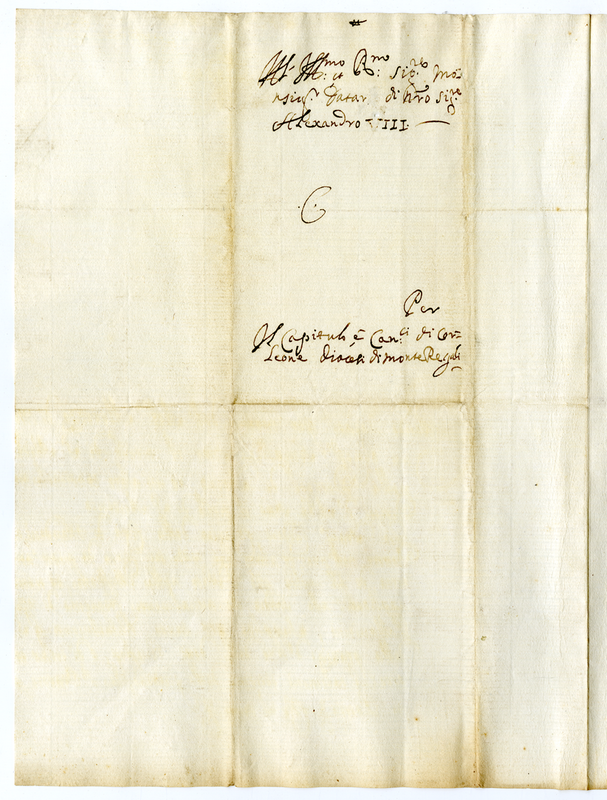 All Ill.mo et R.mo: Sig.re Mon=
nsig.r Datar di Nro Sig.re
Alexandro VIII.
Per
Il Capitulo è Can.ci di Cor=
leone diocesi di monte Regali